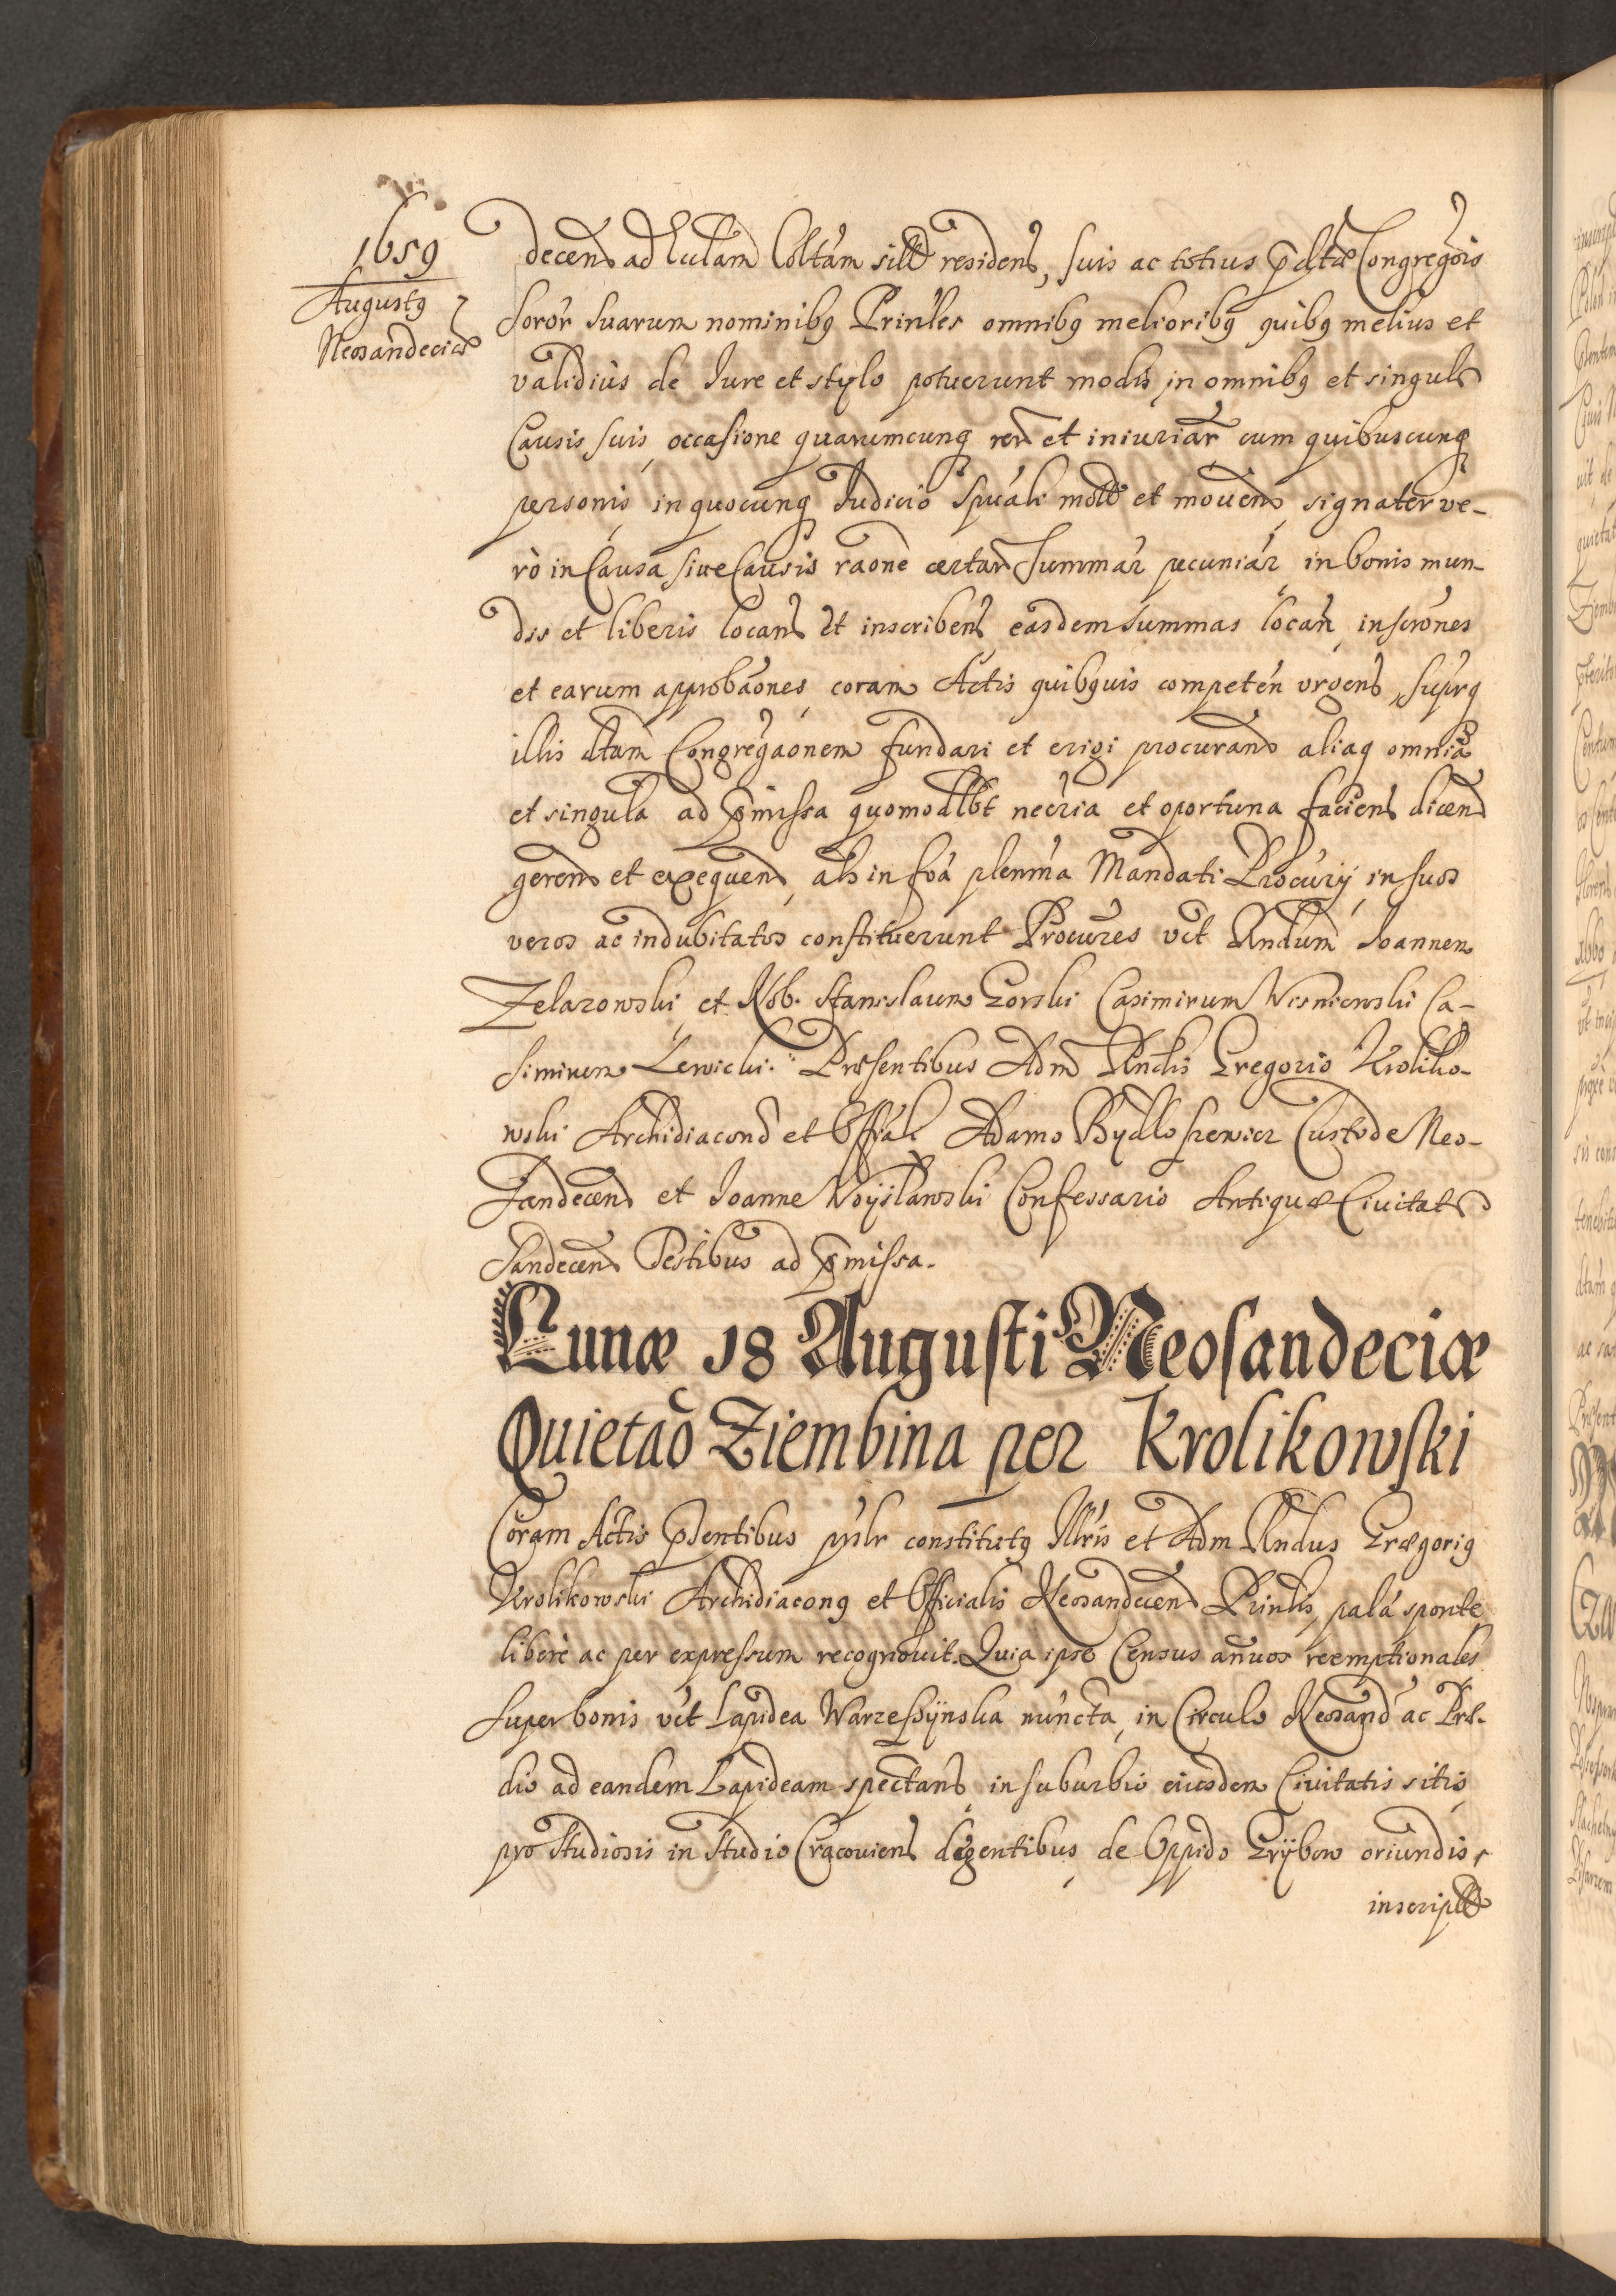 1659
Augustq
Neosandeciæ
decen ad Eccłam Colłtam sitæ residens, suis ac totius pdłtæ Congregōis
Soror Suarum nominibq Prinłes omnibq melioribq quibq melius et
validiùs de Iure et stylo potuerunt modis, in omnibq et singulis
Causis suis, occasione quarumcunq rerū et iniuriar̄ cum quibuscunq
personis, in quocunq Iudicio Spúali motæ et mouen, signater ve-
rò in Causa siue Causis raōne certar̄ Summar̄ pecuniar̄ in bonis mun-
dis et liberis locans et inscribens, easdem summas locan, inscrōnes
et earum approbaōnes, coram Actis quibquis competen̄ vrgens, supeq
illis dtam Congregaōnem fundari et erigi procuran, aliaq omnia
et singula ad pmissa quomodłbt neccria et oportuna faciens dicen
geren et exequen, ałs in foā plenma Mandati Procurij, in suos
veros ac indubitatos constituerunt Procures vct Rndum Ioannem
Zelazowski, et Nob. Stanislaum Gorski Casimirum Wisniewski Ca-
simirum Lewicki. Præsentibus Adm Rndis Gregorio Kroliko-
wski Archidiacono et Offiali Adamo Bydłoszewicz Custode Neo-
Sandecen et Ioanne Woyslawski Confessario Antiquæ Ciuitatis
Sandecen Testibus ad pmissa.
Lunæ 18 Augusti Neosandeciæ
Quietaō Ziembina per Krolikowski
Coram Actis pñsentibus psnlr constitutq Illris et Adm Rndus Grægoriq
Krolikowski Archidiaconq et Officialis Neosandecen Prinłis, palá sponte
liberè ac per expressum recognouit. Quia ipse Census annuos reemptionales
super bonis vct Lapidea Warzeszynska nuncta, in Circulo Neosand ac Præ-
dio ad eandem Lapideam spectans, in suburbio eiusdem Ciuitatis sitis,
pro Studiosis in Studio Cracouiens degentibus, de Oppido Grybow oriundis,
inscriptæ